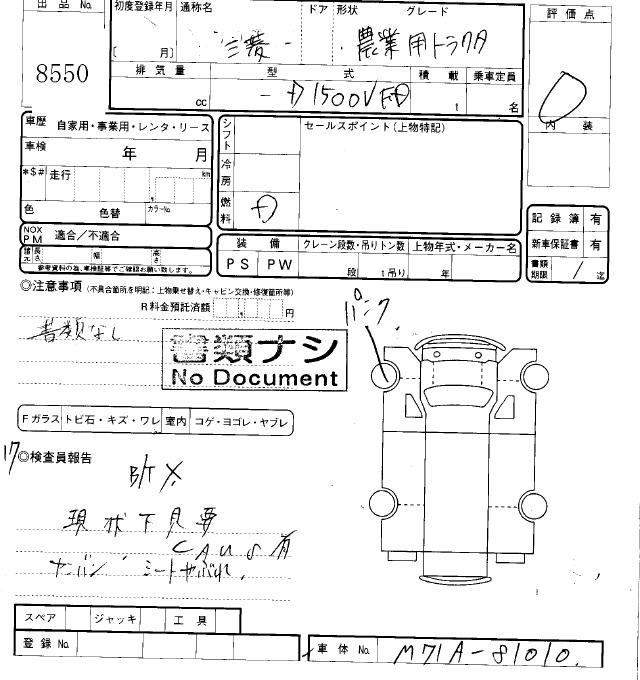 出品 No.
8550
初度登録年月 通称名 ドア 形状 グレード
[ 月] 三菱 - 農業用トラクタ
排気量 型式 積載 乗車定員
cc - D1500V FD t 名
評価点
内装
車歴 自家用・事業用・レンタ・リース
車検 年 月
*$# 走行 km
色 色替 カラーNo.
NOX PM 適合/不適合
諸元 長さ 幅 高さ
参考資料の為、車検証等でご確認お願い致します。
シフト
冷房
燃料 D
セールスポイント(上物特記)
装備 クレーン段数・吊りトン数 上物年式・メーカー名
PS PW 段 t吊り 年
記録簿 有
新車保証書 有
書類期限 / 迄
◎注意事項 (不具合箇所を明記:上物乗せ替え・キャビン交換・修復箇所等)
R料金預託済額 円
書類なし
書類ナシ
No Document
パンク
Fガラス トビ石・キズ・ワレ 室内 コゲ・ヨゴレ・ヤブレ
17 ◎検査員報告
B/T X
現状下見要
ミートやぶれ.
スペア ジャッキ 工具
登録 No.
車体 No. M71A-81010.